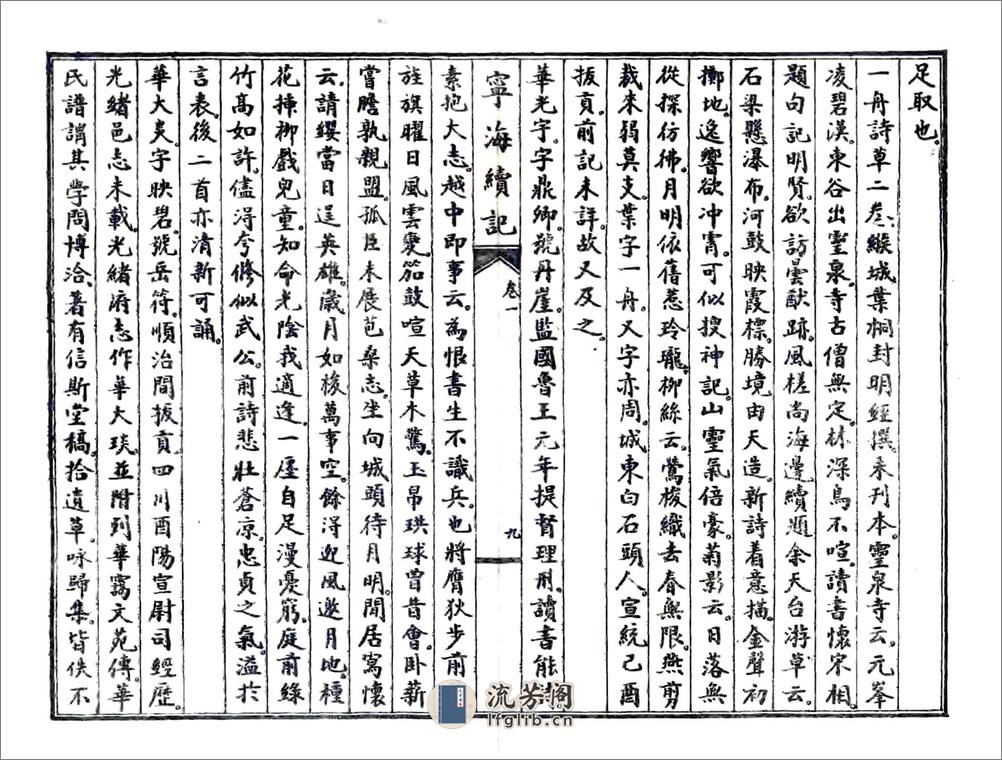 足取也。
一舟詩草二卷、緱城葉桐封明經撰。未刊本。靈泉寺云。元峯
凌碧漢。東谷出靈泉。寺古僧無定。林深鳥不喧。讀書懷宋相。
題句記明賢。欲訪曇猷跡。風槎尚海邊。續題余天台游草云。
石梁懸瀑布。河鼓映霞標。勝境由天造。新詩着意描。金聲初
擲地。逸響欲冲霄。可似搜神記。山靈氣倍豪。菊影云。日落無
從探彷彿。月明依舊惹玲瓏。柳絲云。鶯梭織去春無限。燕剪
裁來弱莫支。葉字一舟。又字亦周。城東白石頭人。宣統己酉
拔貢。前記未詳。故又及之。
華光宇。字鼎卿。號丹崖。監國魯王元年提督理刑。讀書能
寧海續記
卷一
九
素抱大志。越中即事云。為恨書生不識兵。也將膺狄步前
旌旗曜日風雲變。笳鼓喧天草木驚。玉帛珙球曾昔會。卧薪
嘗膽孰親盟。孤臣未展苞桑志。坐向城頭待月明。閒居寫懷
云。請纓當日逞英雄。歲月如梭萬事空。餘得迎風邀月地。種
花插柳戲兒童。知命光陰我適逢。一廛自足漫憂窮。庭前綠
竹高如許。儘淂夸修似武公。前詩悲壯蒼凉。忠貞之氣。溢於
言表。後二首亦清新可誦。
華大炎。字映碧。號岳符。順治間拔貢。四川酉陽宣尉司經歷。
光緒邑志未載。光緒府志作華大琰。並附列華靄文苑傳。華
氏譜謂其學問博洽。著有信斯堂稿。拾遺草。咏歸集。皆佚不
流芳阁
lfglib.cn